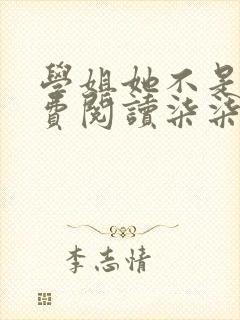 學姐她不是
費閱讀柒柒
李志情